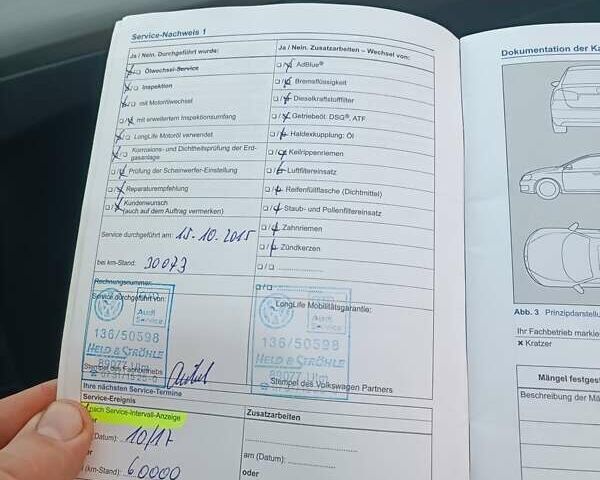 Service-Nachweis 1
Ja / Nein. Durchgeführt wurde:
Ölwechsel-Service
Inspektion
mit Motorölwechsel
mit erweitertem Inspektionsumfang
LongLife Motoröl verwendet
Korrosions- und Dichtheitsprüfung der Erd-
gasanlage
Prüfung der Scheinwerfer-Einstellung
Reparaturempfehlung
Kundenwunsch
(auch auf dem Auftrag vermerken)
Service durchgeführt am: 15.10.2015
bei km-Stand: 30073
Rechnungsnummer:
Service durchgeführt von:
Audi
Service
136/50598
HELD & STRÖHLE
89077 Ulm
Stempel des Fachbetriebs
Ja / Nein. Zusatzarbeiten – Wechsel von:
AdBlue®
Bremsflüssigkeit
Dieselkraftstofffilter
Getriebeöl: DSG®, ATF
Haldexkupplung: Öl
Keilrippenriemen
Luftfiltereinsatz
Reifenfüllflasche (Dichtmittel)
Staub- und Pollenfiltereinsatz
Zahnriemen
Zündkerzen
LongLife Mobilitätsgarantie:
Audi
Service
136/50598
HELD & STRÖHLE
89077 Ulm
Stempel des Volkswagen Partners
Ihre nächsten Service-Termine
Service-Ereignis
nach Service-Intervall-Anzeige
(Datum): 10/17
(km-Stand): 60000
Zusatzarbeiten
am (Datum):
oder
Dokumentation der Ka
Abb. 3 Prinzipdarstellu
Ihr Fachbetrieb markie
x Kratzer
Mängel festgest
Beschreibung der Mä